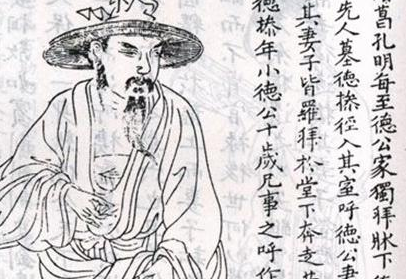 葛孔明每至德公家獨拜牀下
先人墓德操徑入其室呼德公妻
其妻子皆羅拜於堂下奔走共
德操年小德公十歲兄事之呼作